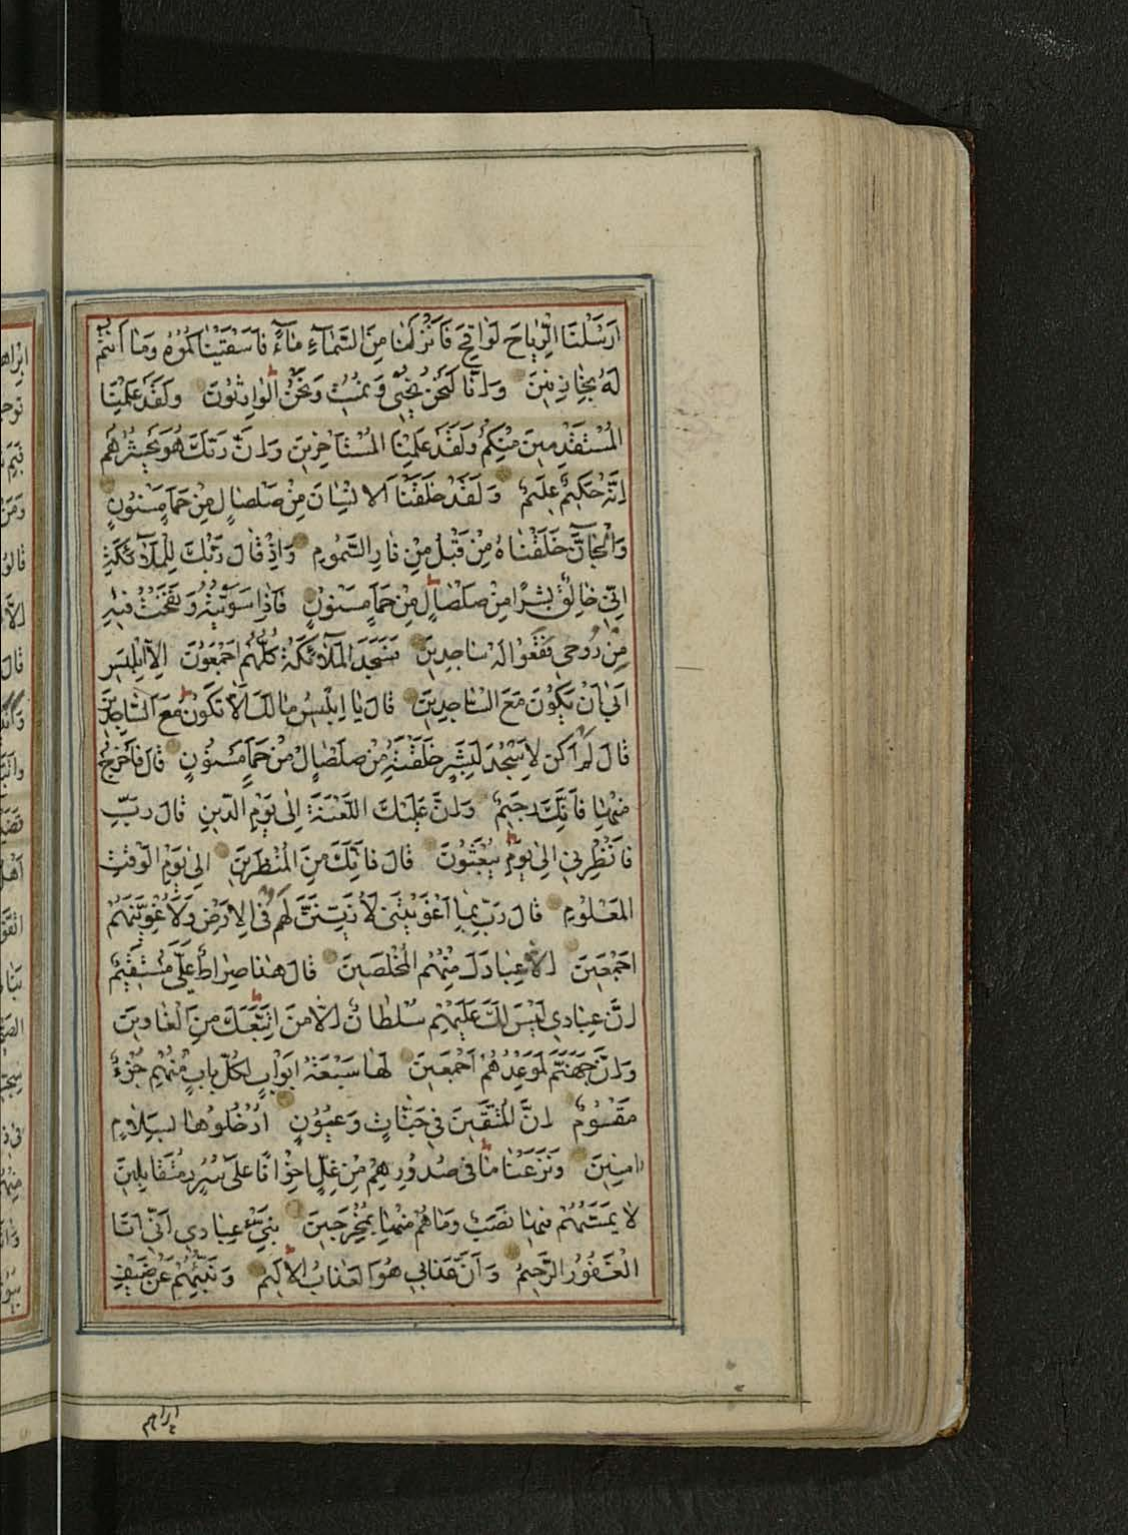 ارَسَلْنَا الرِّيٰاحَ لَوٰاقِحَ فَاَنْزَلْنٰا مِنَ السَّمٰآءِ مٰآءً فَاَسْقَيْنٰاكُمُوهُ وَمٰا اَنْتُمْ
لَهُ بِخٰازِنِينَ وَاِنّٰا لَنَحْنُ نُحْيِي وَنُمِيتُ وَنَحْنُ الْوٰارِثُونَ وَلَقَدْ عَلِمْنَا
الْمُسْتَقْدِمِينَ مِنْكُمْ وَلَقَدْ عَلِمْنَا الْمُسْتَأْخِرِينَ وَاِنَّ رَبَّكَ هُوَ يَحْشُرُهُمْ
اِنَّهُ حَكِيمٌ عَلِيمٌ وَلَقَدْ خَلَقْنَا الْاِنْسٰانَ مِنْ صَلْصٰالٍ مِنْ حَمَاٍ مَسْنُونٍ
وَالْجٰانَّ خَلَقْنٰاهُ مِنْ قَبْلُ مِنْ نٰارِ السَّمُومِ وَاِذْ قٰالَ رَبُّكَ لِلْمَلٰآئِكَةِ
اِنّى خٰالِقٌ بَشَرًا مِنْ صَلْصٰالٍ مِنْ حَمَاٍ مَسْنُونٍ فَاِذٰا سَوَّيْتُهُ وَنَفَخْتُ فِيهِ
مِنْ رُوحِى فَقَعُوا لَهُ سٰاجِدِينَ فَسَجَدَ الْمَلٰآئِكَةُ كُلُّهُمْ اَجْمَعُونَ اِلَّا اِبْلِيسَ
اَبٰى اَنْ يَكُونَ مَعَ السّٰاجِدِينَ قٰالَ يٰا اِبْلِيسُ مٰا لَكَ اَلَّا تَكُونَ مَعَ السّٰاجِدِينَ
قٰالَ لَمْ اَكُنْ لِاَسْجُدَ لِبَشَرٍ خَلَقْتَهُ مِنْ صَلْصٰالٍ مِنْ حَمَاٍ مَسْنُونٍ قٰالَ فَاخْرُجْ
مِنْهٰا فَاِنَّكَ رَجِيمٌ وَاِنَّ عَلَيْكَ اللَّعْنَةَ اِلٰى يَوْمِ الدِّينِ قٰالَ رَبِّ
فَاَنْظِرْنِى اِلٰى يَوْمِ يُبْعَثُونَ قٰالَ فَاِنَّكَ مِنَ الْمُنْظَرِينَ اِلٰى يَوْمِ الْوَقْتِ
الْمَعْلُومِ قٰالَ رَبِّ بِمٰا اَغْوَيْتَنِى لَاُزَيِّنَنَّ لَهُمْ فِى الْاَرْضِ وَلَاُغْوِيَنَّهُمْ
اَجْمَعِينَ اِلَّا عِبٰادَكَ مِنْهُمُ الْمُخْلَصِينَ قٰالَ هٰذٰا صِرٰاطٌ عَلَىَّ مُسْتَقِيمٌ
اِنَّ عِبٰادِى لَيْسَ لَكَ عَلَيْهِمْ سُلْطٰانٌ اِلّٰا مَنِ اتَّبَعَكَ مِنَ الْغٰاوِينَ
وَاِنَّ جَهَنَّمَ لَمَوْعِدُهُمْ اَجْمَعِينَ لَهٰا سَبْعَةُ اَبْوٰابٍ لِكُلِّ بٰابٍ مِنْهُمْ جُزْءٌ
مَقْسُومٌ اِنَّ الْمُتَّقِينَ فِى جَنّٰاتٍ وَعُيُونٍ اُدْخُلُوهٰا بِسَلٰامٍ
اٰمِنِينَ وَنَزَعْنٰا مٰا فِى صُدُورِهِمْ مِنْ غِلٍّ اِخْوٰانًا عَلٰى سُرُرٍ مُتَقٰابِلِينَ
لٰا يَمَسُّهُمْ فِيهٰا نَصَبٌ وَمٰا هُمْ مِنْهٰا بِمُخْرَجِينَ نَبِّئْ عِبٰادِى اَنِّى اَنَا
الْغَفُورُ الرَّحِيمُ وَاَنَّ عَذٰابِى هُوَ الْعَذٰابُ الْاَلِيمُ وَنَبِّئْهُمْ عَنْ ضَيْفِ
ابراهيم